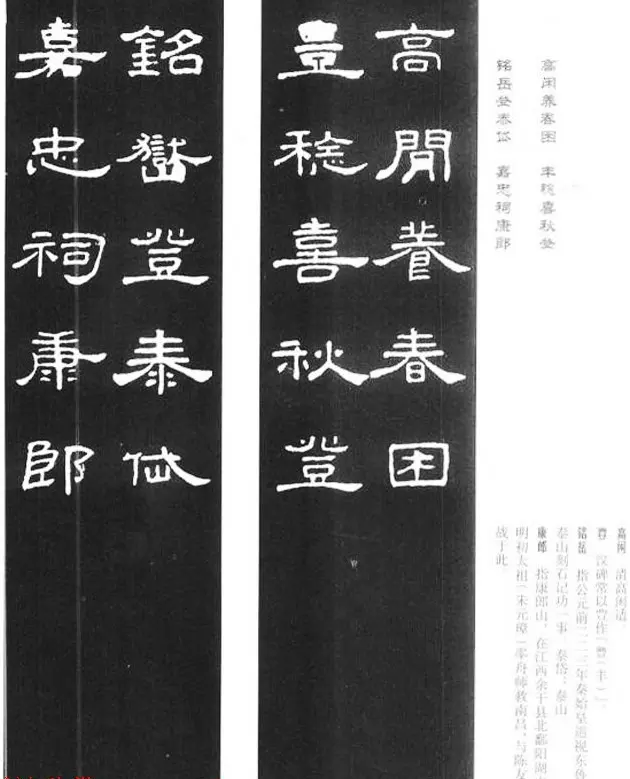 高閒養春困
豈稔喜秋登
銘嶽登泰岱
嘉忠祠康郎
高闲养春困 丰稔喜秋登
铭岳登泰岱 嘉忠祠康郎
高闲 清高闲适。
豈 汉碑常以豈作“豐（丰）”。
铭岳 指公元前二一三年秦始皇巡视东鲁
泰山刻石记功一事 泰岱：泰山
康郎 指康郎山，在江西余干县北鄱阳湖
明初太祖（朱元璋）率舟师救南昌，与陈友
战于此